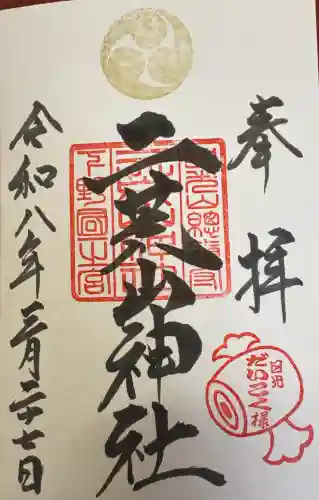 奉拝
日光
だいこく様
二荒山神社
下野國一之宮
令和八年三月二十七日